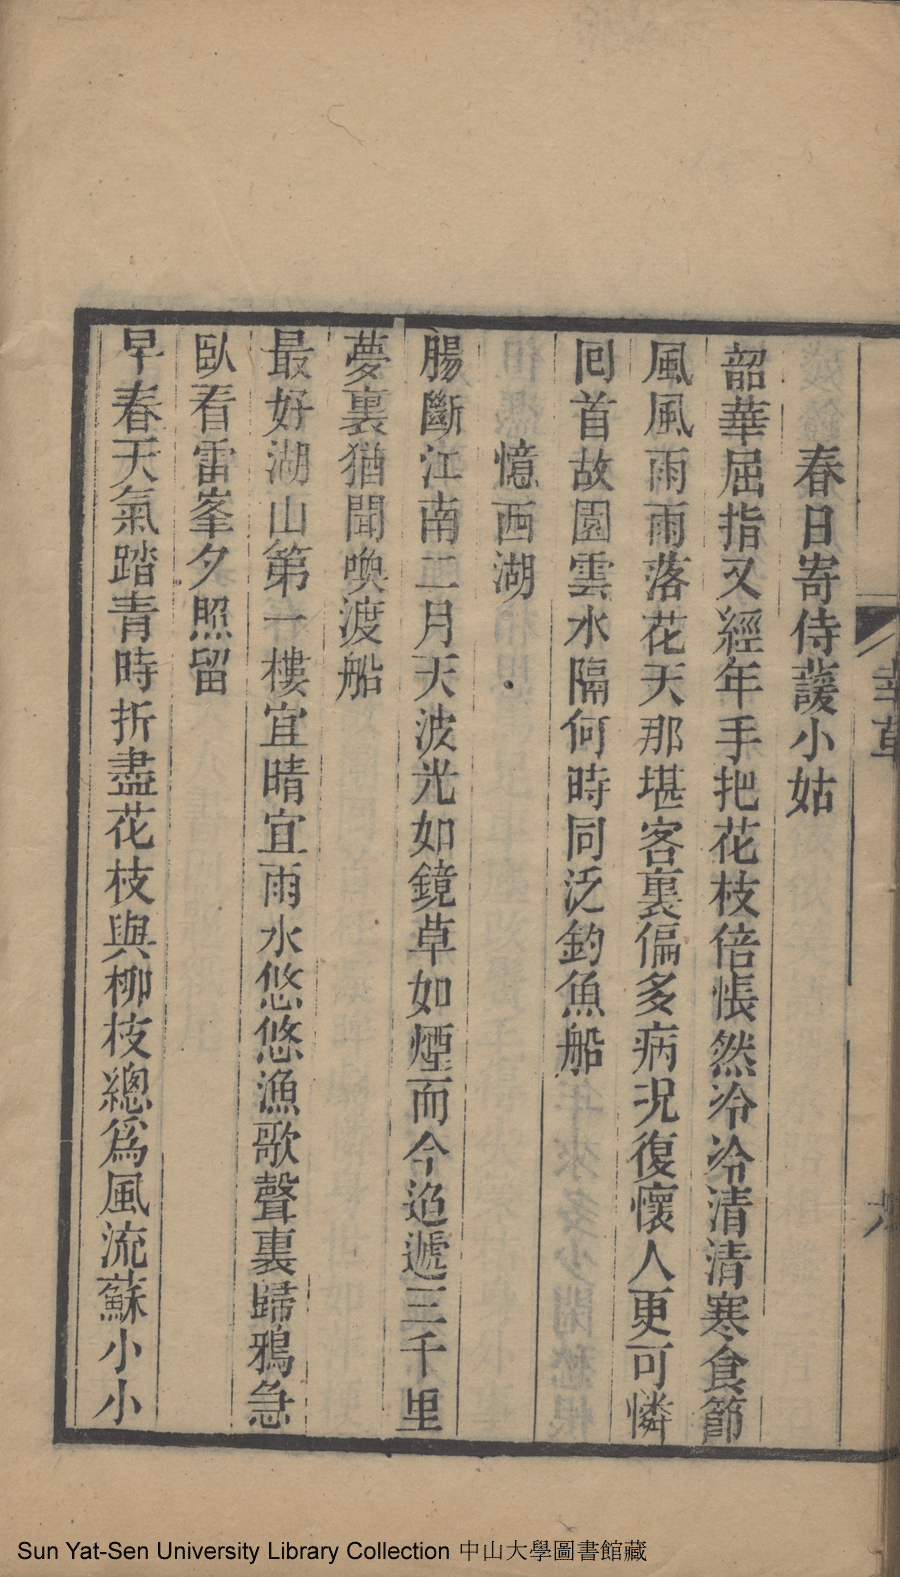 春日寄侍護小姑
韶華屈指又經年手把花枝倍悵然冷冷清清寒食節
風風雨雨落花天那堪客裏偏多病況復懷人更可憐
回首故園雲水隔何時同泛釣魚船
憶西湖
腸斷江南二月天波光如鏡草如煙而今迢遞三千里
夢裏猶聞喚渡船
最好湖山第一樓宜晴宜雨水悠悠漁歌聲裏歸鴉急
臥看雷峯夕照留
早春天氣踏青時折盡花枝與柳枝總爲風流蘇小小
Sun Yat-Sen University Library Collection 中山大學圖書館藏